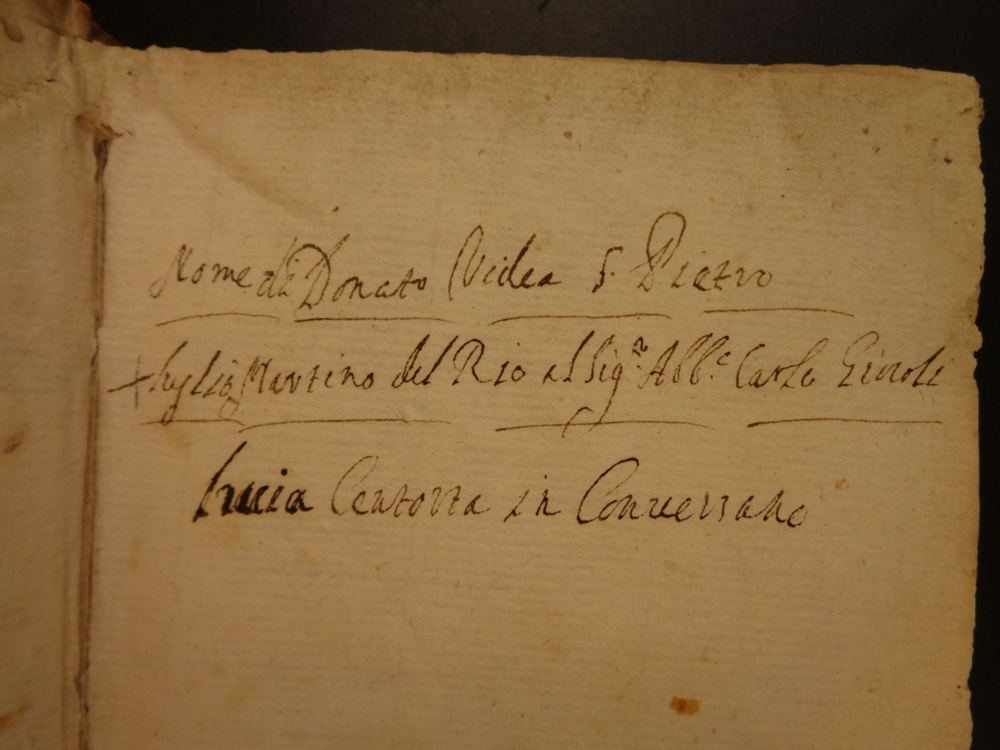 Nome di Donato Videa S. Pietro
Martino del Rio al Sig.r Abb.e Carlo
Lucia Centorta in Conversano